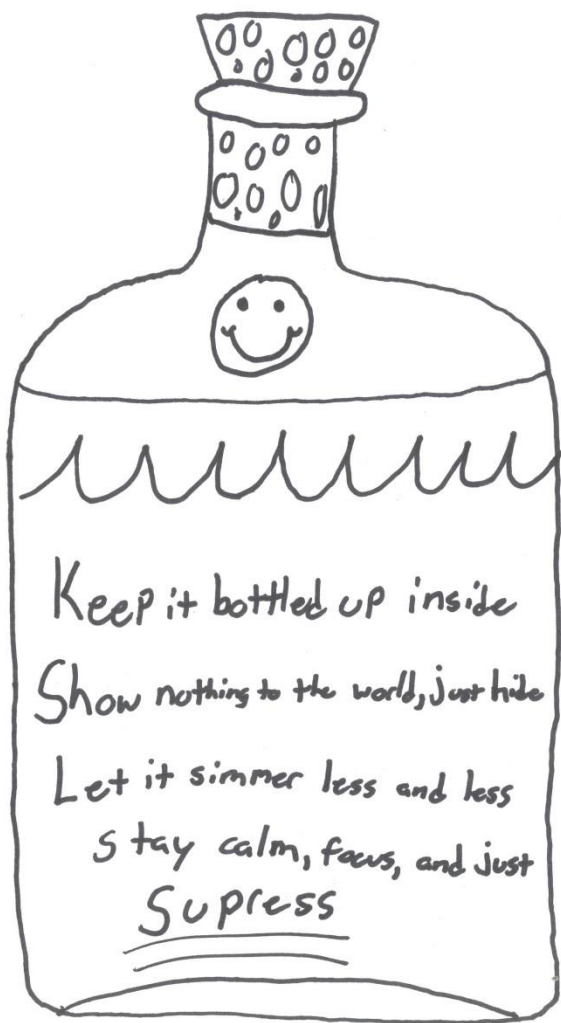 Keep it bottled up inside
Show nothing to the world, just hide
Let it simmer less and less
Stay calm, focus, and just
Supress